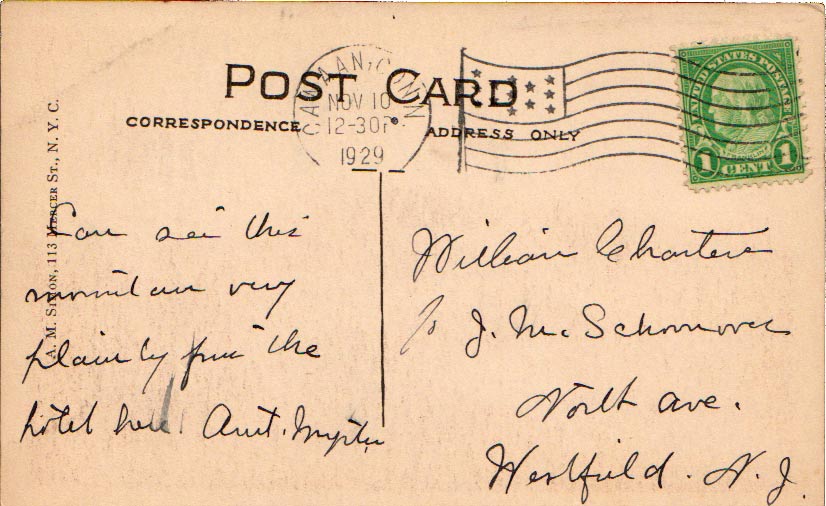 POST CARD
CORRESPONDENCE
ADDRESS ONLY
CANAAN, CONN
NOV 10
12-30P
1929
UNITED STATES POSTAGE
1 CENT 1
A. M. SIMON, 113 MERCER ST., N. Y. C.
Can see this
mountain very
plainly from the
hotel here. Aunt Myrtie
William Charters
J. Mc Schoonover
North Ave.
Westfield. N. J.